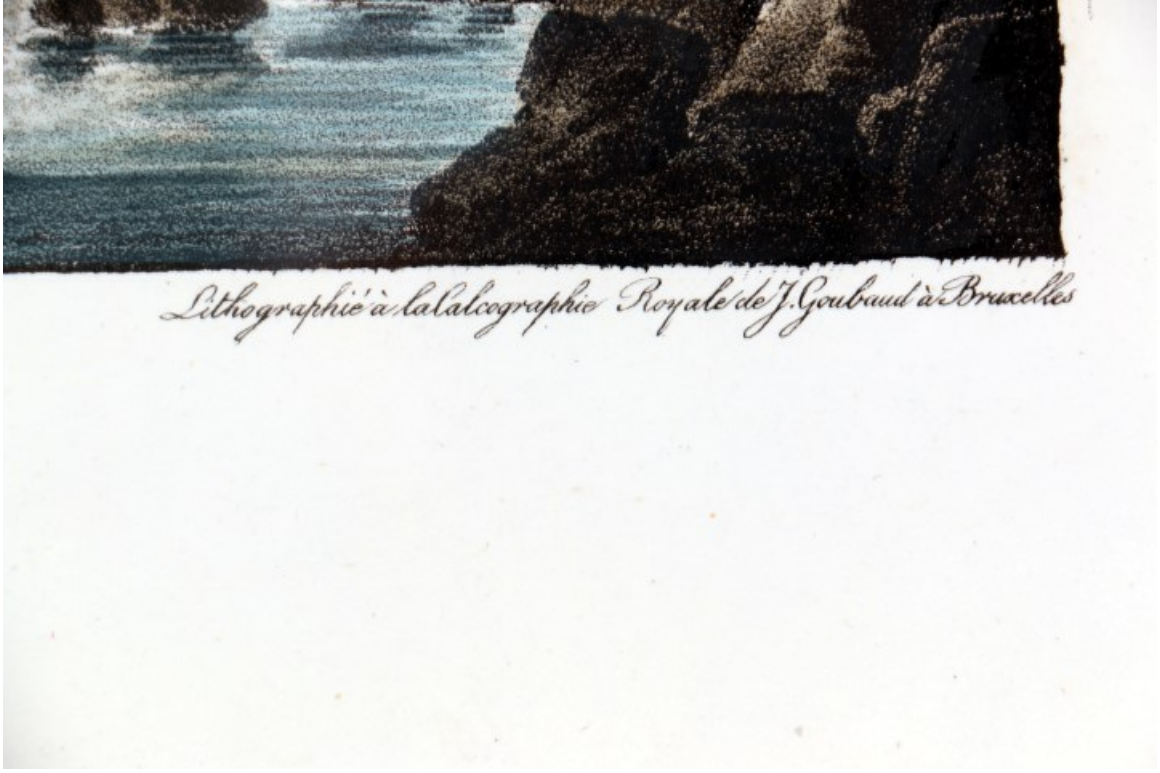 Lithographié à la Calcographie Royale de J. Goubaud à Bruxelles